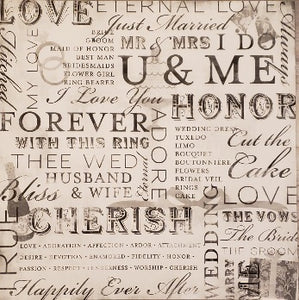 LOVE
ETERNAL LOVE
Just Married
BRIDE
GROOM
MAID OF HONOR
BEST MAN
BRIDESMAIDS
FLOWER GIRL
RING BEARER
MY LOVE
MR & MRS I DO
U & ME
I Love You
HONOR
FOREVER
WITH THIS RING
THEE WED
HUSBAND
& WIFE
Eternal
ADORE
WEDDING DRESS
TUXEDO
LIMO
BOUQUET
BOUTONNIERE
FLOWERS
BRIDAL VEIL
RINGS
CAKE
Cut the
Cake
LOVE
Bliss
CHERISH
TRUE
LOVE • ADORATION • AFFECTION • ARDOR • ATTACHMENT
DESIRE • DEVOTION • ENAMORED • FIDELITY • HONOR
PASSION • RESPECT • TENDERNESS • WORSHIP • CHERISH
Happily Ever After
WEDDING
THE VOWS
The Bride
THE GROOM
ME